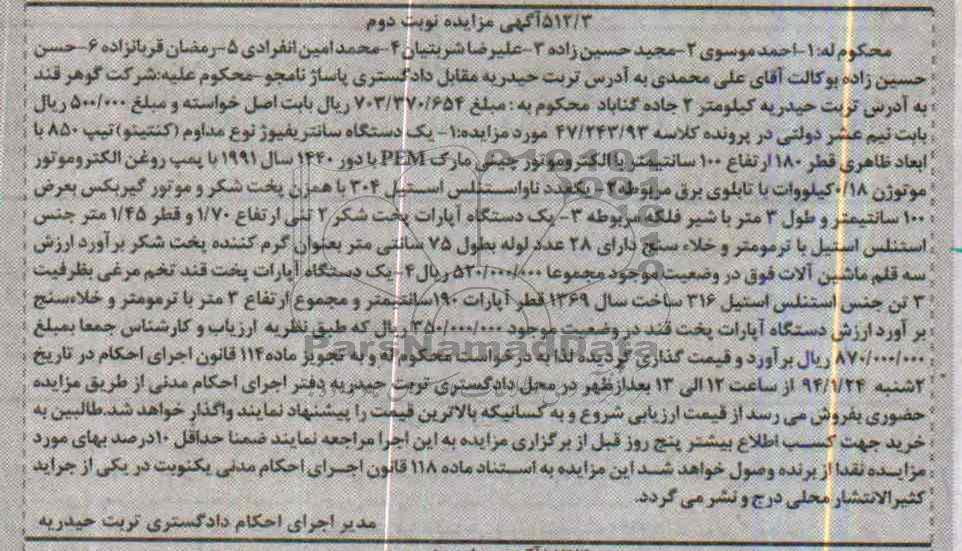 ۵۱۲/۳آگهی مزایده نوبت دوم
محکوم له:۱-احمد موسوی ۲-مجید حسین زاده ۳-علیرضا شربتیان ۴-محمد امین انفرادی ۵-رمضان قربانزاده ۶-حسن
حسین زاده بوکالت آقای علی محمدی به آدرس تربت حیدریه مقابل دادگستری پاساژ نامجو-محکوم علیه:شرکت گوهر قند
به آدرس تربت حیدریه کیلومتر ۲ جاده گناباد محکوم به: مبلغ ۷۰۳/۳۷۰/۶۵۴ ریال بابت اصل خواسته و مبلغ ۵۰۰/۰۰۰ ریال
بابت نیم عشر دولتی در پرونده کلاسه ۴۷/۲۴۳/۹۳ مورد مزایده:۱- یک دستگاه سانتریفیوژ نوع مداوم (کنتینو)تیپ ۸۵۰ با
ابعاد ظاهری قطر ۱۸۰ ارتفاع ۱۰۰ سانتیمتر با الکتروموتور چینی مارک PEM با دور ۱۴۴۰ سال ۱۹۹۱ با پمپ روغن الکتروموتور
موتوژن ۰/۱۸کیلووات با تابلوی برق مربوطه۲- یکعدد ناواستنلس استیل ۳۰۴ با همزن پخت شکر و موتور گیربکس بعرض
۱۰۰ سانتیمتر و طول ۳ متر با شیر فلکه مربوطه ۳- یک دستگاه آپارات پخت شکر ۲ تنی ارتفاع ۱/۷۰ و قطر ۱/۴۵ متر جنس
استنلس استیل با ترمومتر و خلاء سنج دارای ۲۸ عدد لوله بطول ۷۵ سانتی متر بعنوان گرم کننده پخت شکر برآورد ارزش
سه قلم ماشین آلات فوق در وضعیت موجود مجموعا ۵۲۰/۰۰۰/۰۰۰ ریال۴- یک دستگاه آپارات پخت قند تخم مرغی بظرفیت
۳ تن جنس استنلس استیل ۳۱۶ ساخت سال ۱۳۶۹ قطر آپارات ۱۹۰سانتیمتر و مجموع ارتفاع ۳ متر با ترمومتر و خلاءسنج
برآورد ارزش دستگاه آپارات پخت قند در وضعیت موجود ۳۵۰/۰۰۰/۰۰۰ ریال که طبق نظریه ارزیاب و کارشناس جمعا بمبلغ
۸۷۰/۰۰۰/۰۰۰ ریال برآورد و قیمت گذاری گردیده لذا به درخواست محکوم له و به تجویز ماده ۱۱۴ قانون اجرای احکام در تاریخ
۲شنبه ۹۴/۱/۲۴ از ساعت ۱۲ الی ۱۳ بعدازظهر در محل دادگستری تربت حیدریه دفتر اجرای احکام مدنی از طریق مزایده
حضوری بفروش می رسد از قیمت ارزیابی شروع و به کسانیکه بالاترین قیمت را پیشنهاد نمایند واگذار خواهد شد.طالبین به
خرید جهت کسب اطلاع بیشتر پنج روز قبل از برگزاری مزایده به این اجرا مراجعه نمایند ضمنا حداقل ۱۰درصد بهای مورد
مزایده نقدا از برنده وصول خواهد شد این مزایده به استناد ماده ۱۱۸ قانون اجرای احکام مدنی یکنوبت در یکی از جراید
کثیرالانتشار محلی درج و نشر می گردد.
مدیر اجرای احکام دادگستری تربت حیدریه
ParsNamadData